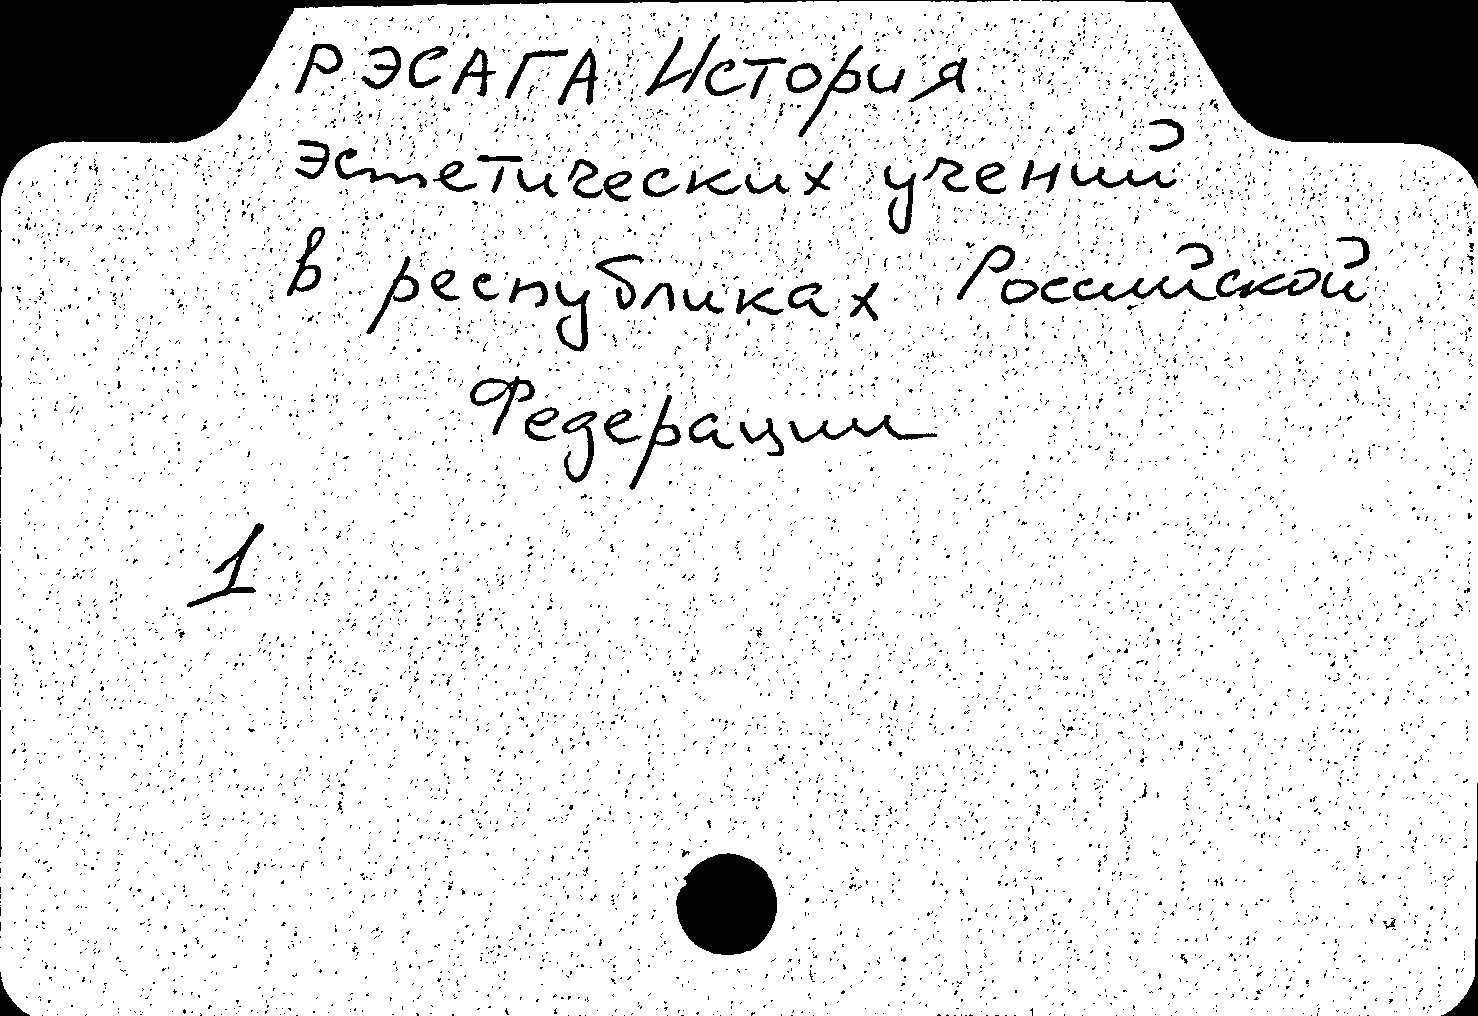 РЭСАГА История
эстетических учений
в республиках Российской
Федерации
1